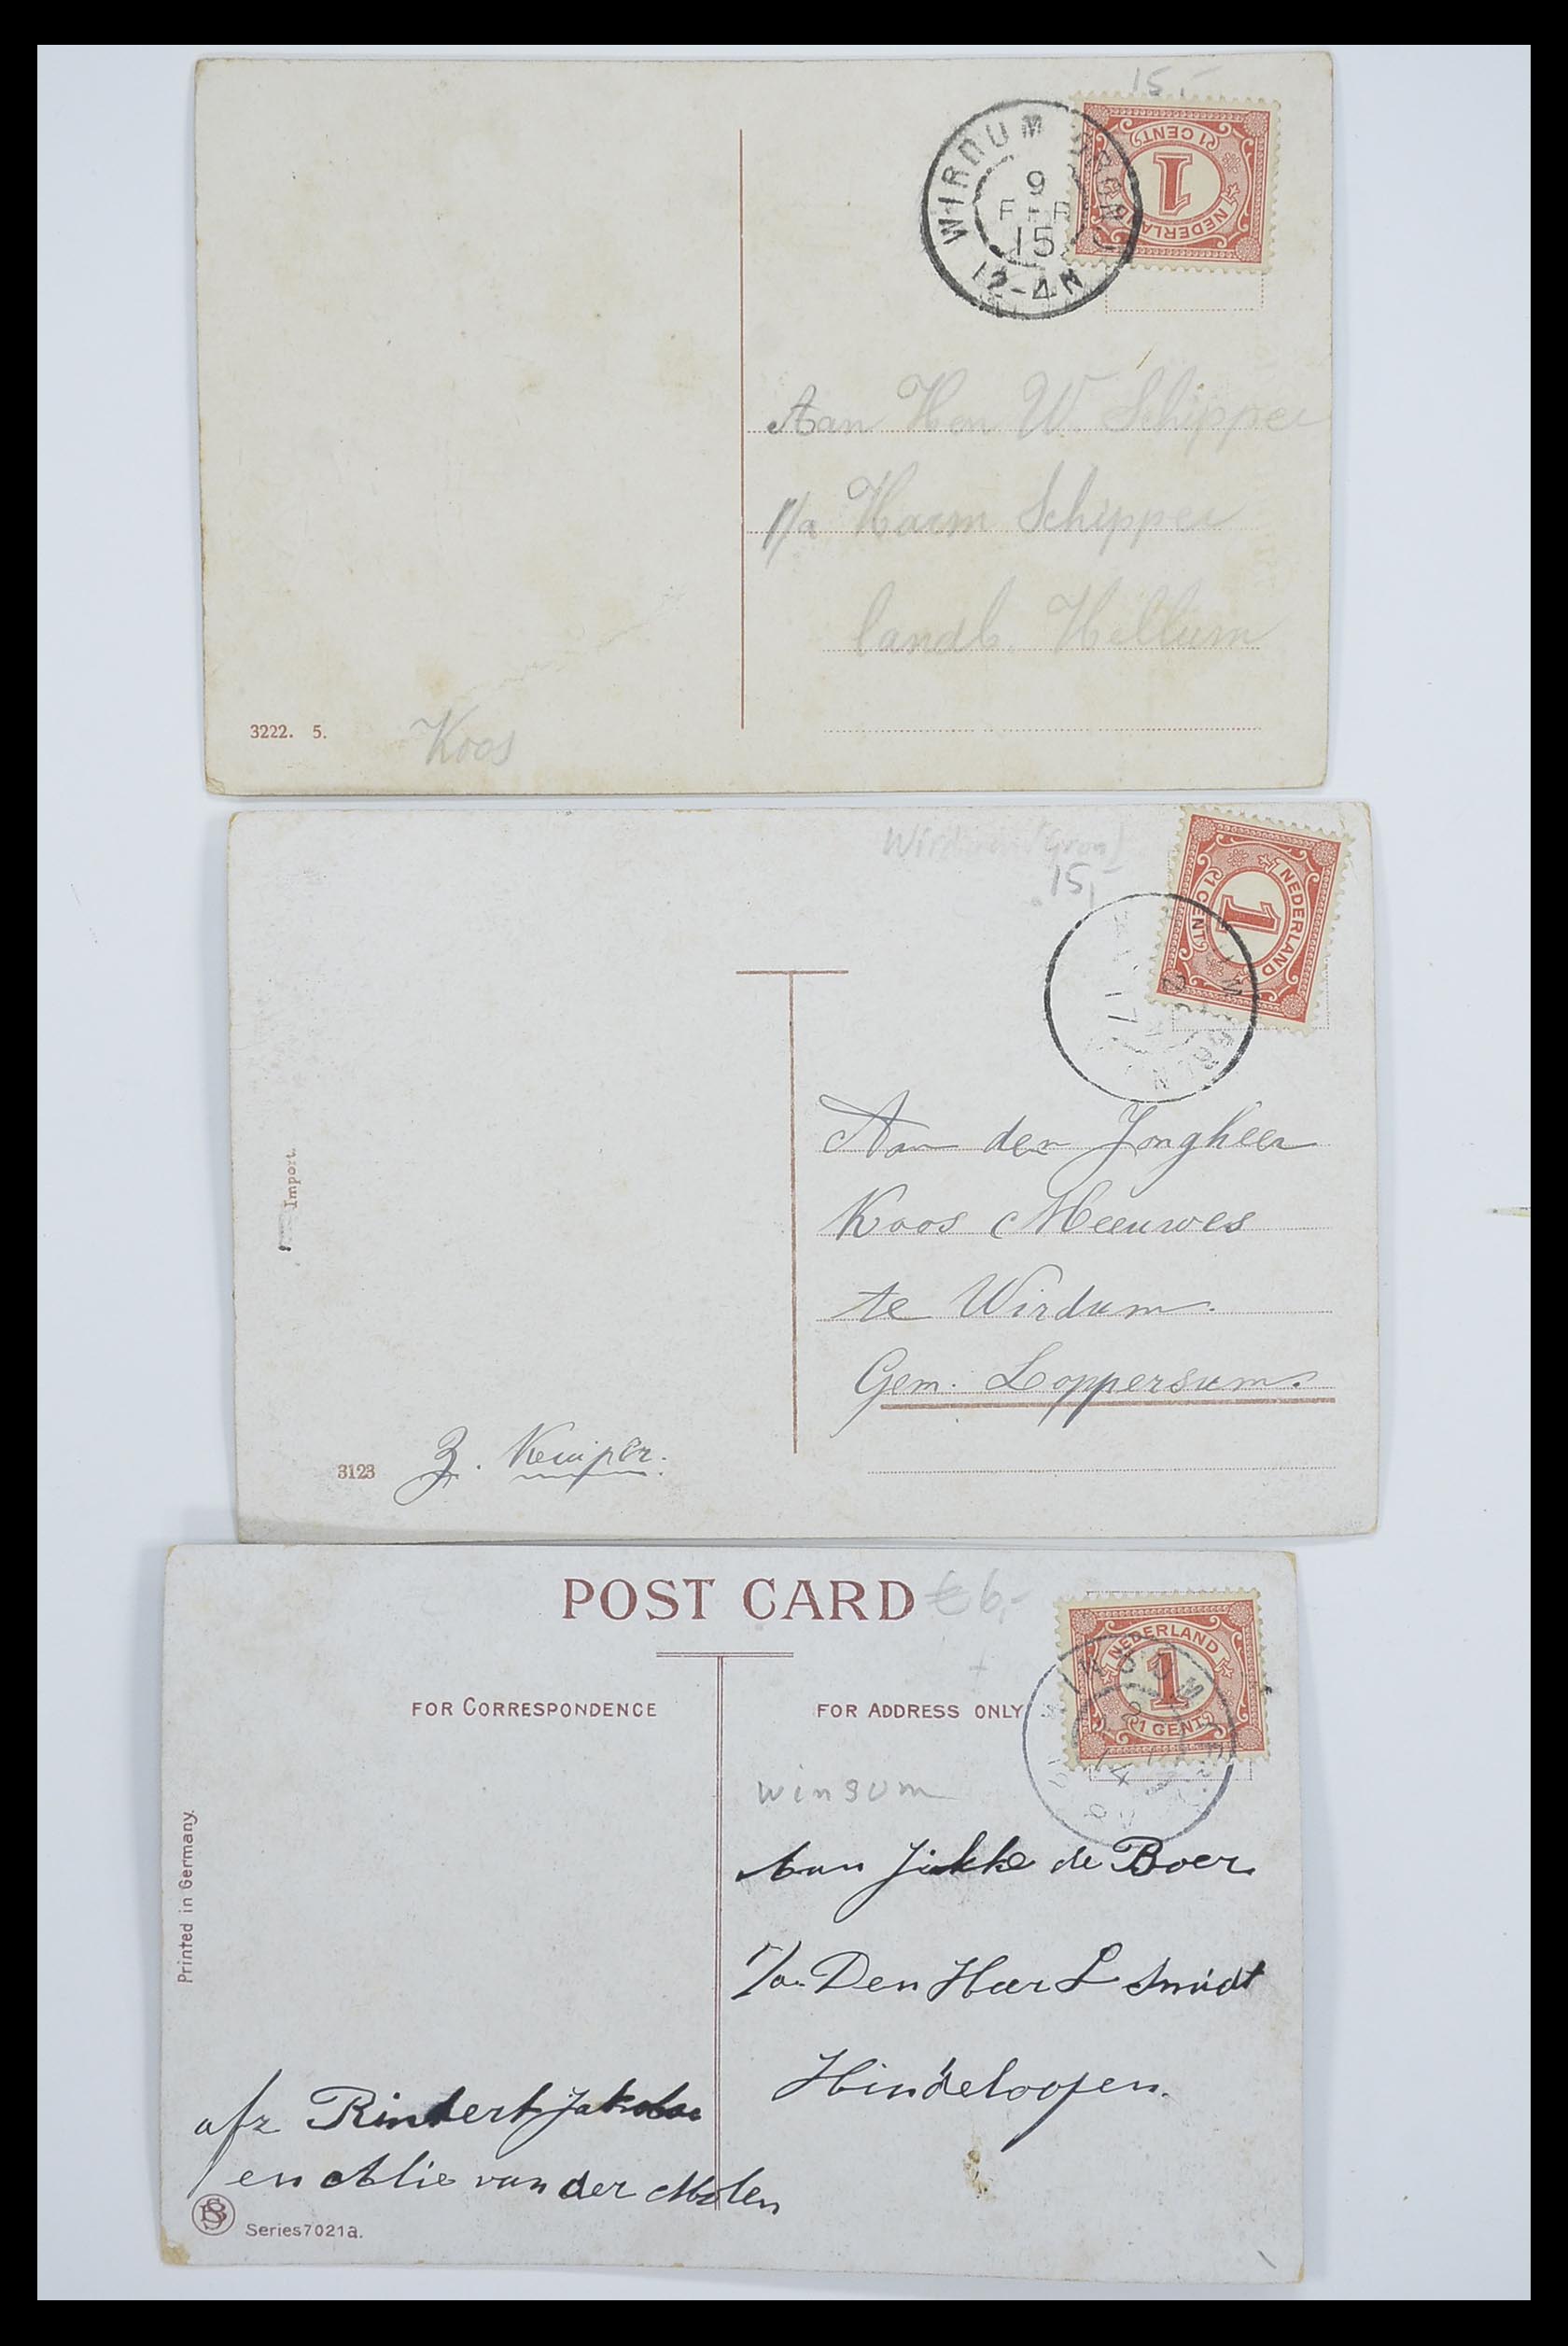 15,-
WIRDUM
9
FEB
15
12-4N
NEDERLAND
1
1 CENT
Aan Hen W. Schipper
p/a Harm Schipper
landb. Hellum
3222. 5.
Koos
Wirdum (Gron)
15,-
NEDERLAND
1
1 CENT
17
Import.
Aan den Jongheer
Koos Meeuwes
te Wirdum.
Gem. Loppersum.
3123
Z. Kemper.
POST CARD
€ 6,-
NEDERLAND
1
1 CENT
14
FOR CORRESPONDENCE
FOR ADDRESS ONLY
winsum
Aan Jikke de Boer
P/a. Den Heer L Smidt
Hindeloopen.
Printed in Germany.
afz Rintert Jakobs
en Alie van der Molen
BS
Series 7021a.